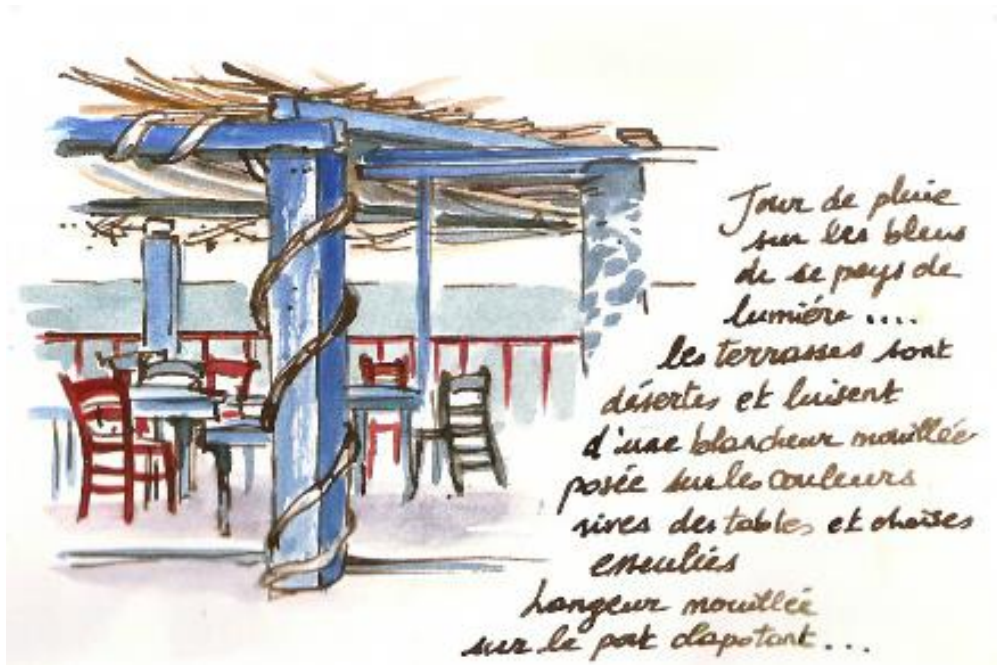 Jour de pluie
sur les bleus
de ce pays de
lumière ....
les terrasses sont
désertes et luisent
d'une blancheur mouillée
posée sur les couleurs
vives des tables et chaises
esseulées
Langeur mouillée
sur le port clapotant...